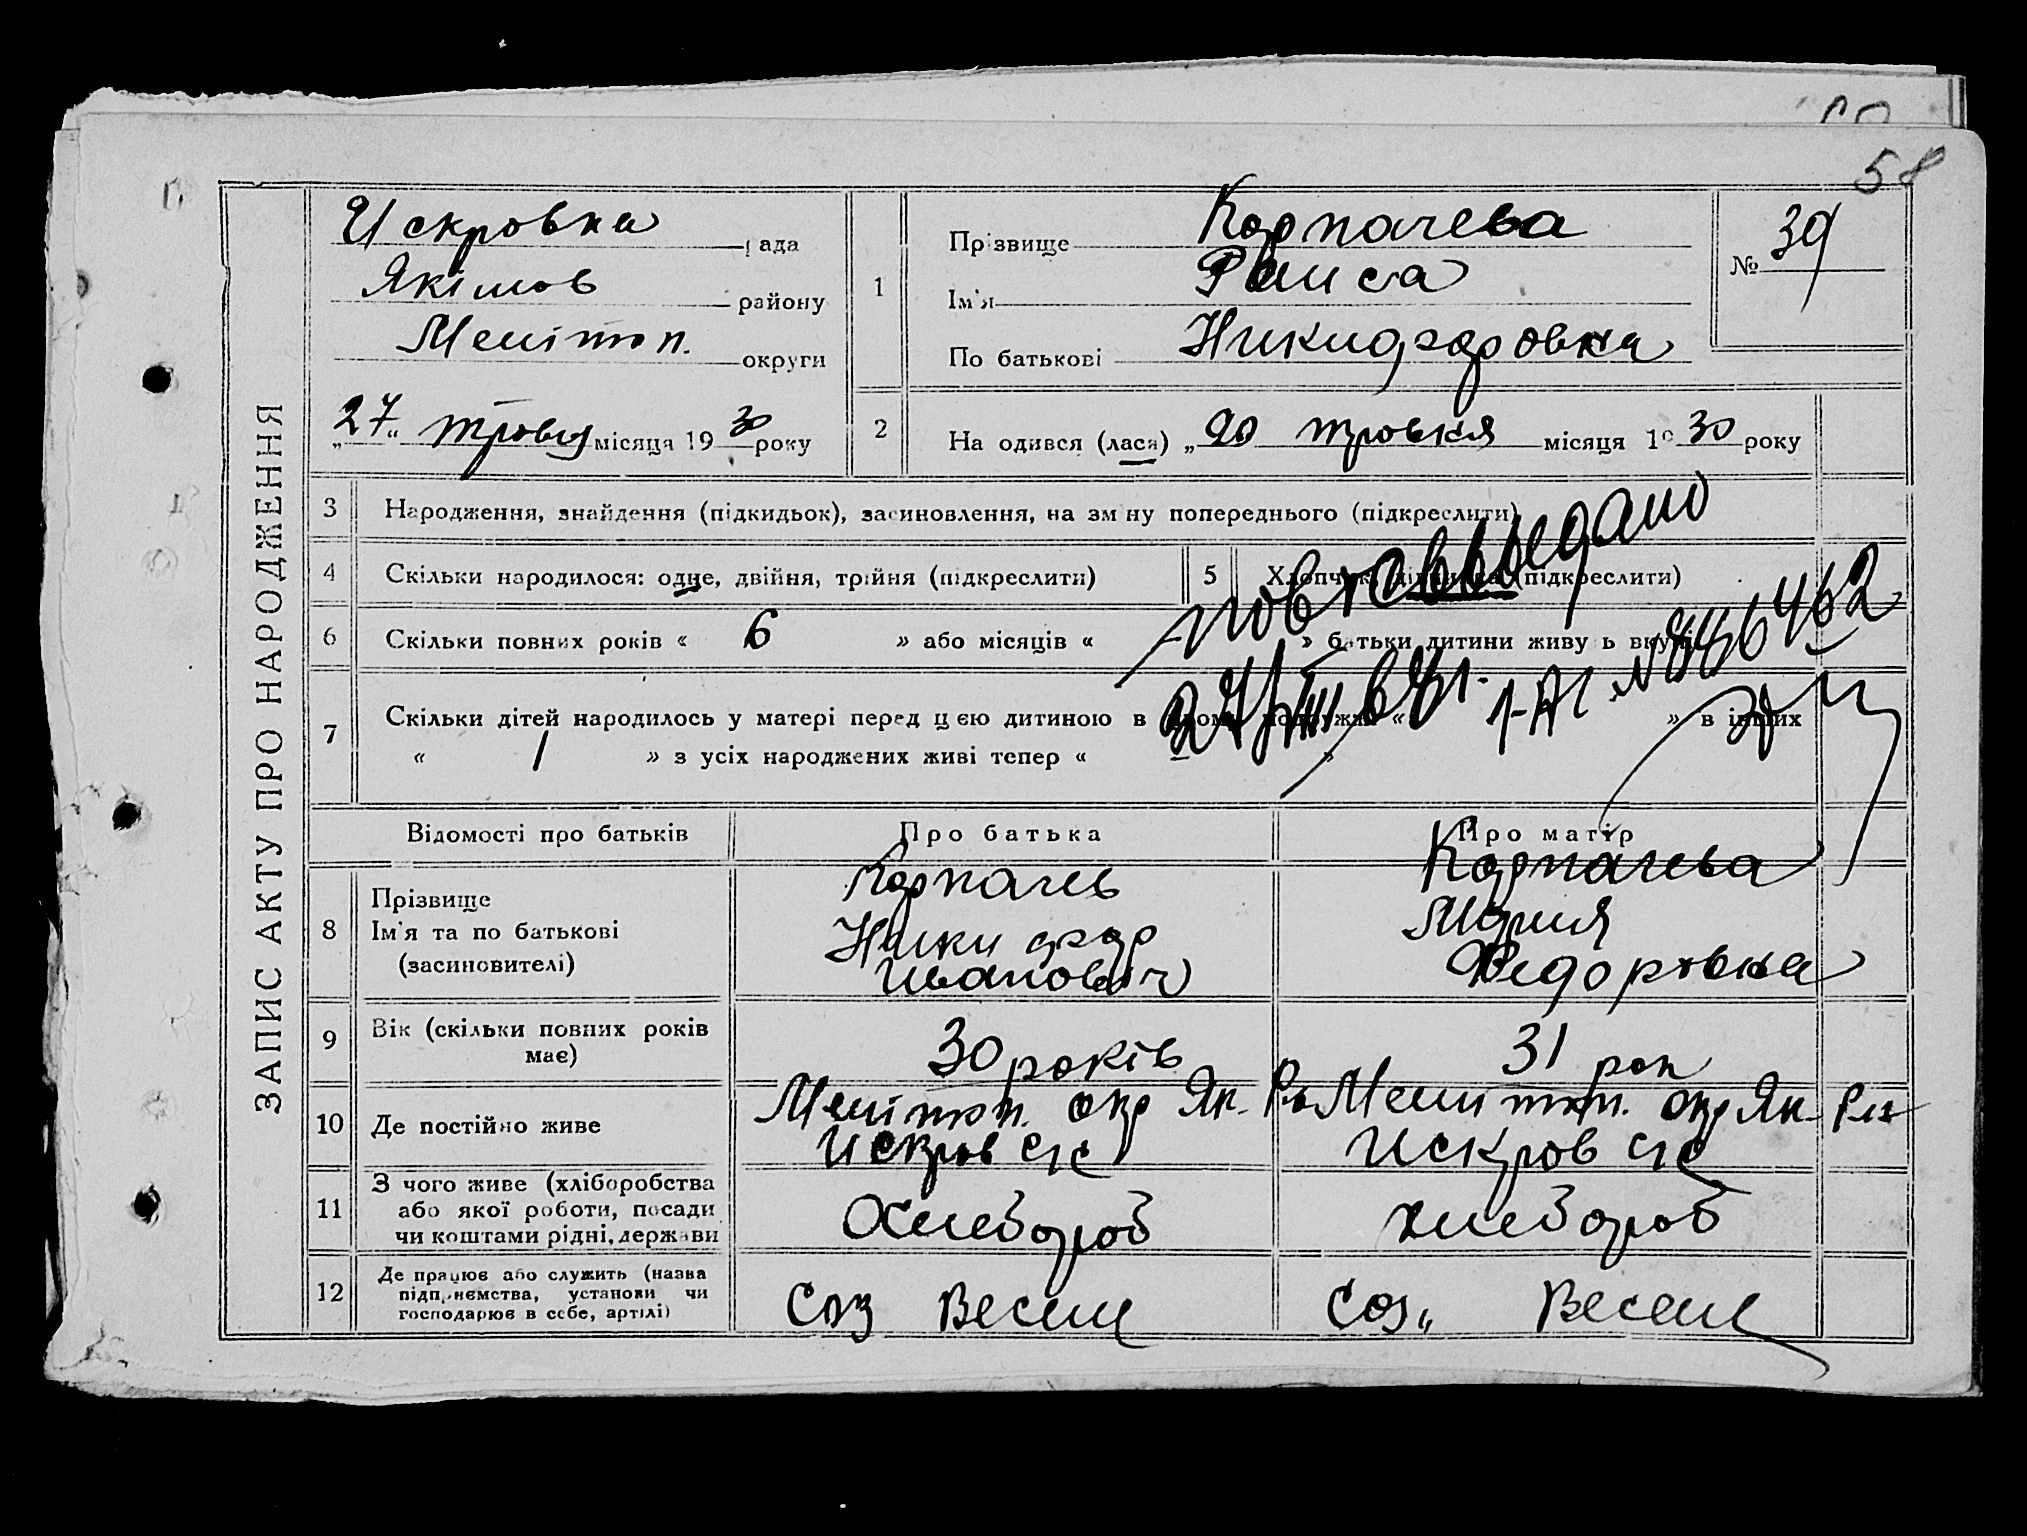 58
ЗАПИС АКТУ ПРО НАРОДЖЕННЯ
Искровка рада
Якімов району
Мелітоп. округи
„27“ травня місяця 1930 року
1
Прізвище Карпачева
Ім'я Раиса
По батькові Никифоровна
№ 39
2
На одився (лася) „20 травня місяця 1930 року
3 Народження, знайдення (підкидьок), засиновлення, на зміну попереднього (підкреслити)
4 Скільки народилося: одне, двійня, трійня (підкреслити)
5 Хлопчик, дівчинка (підкреслити)
повт. св. выдано
6 Скільки повних років « 6 » або місяців « » батьки дитини живуть вкупі
№ 886462
7 Скільки дітей народилось у матері перед цією дитиною в цьому подружжі « » в інших
« 1 » з усіх народжених живі тепер « »
Відомості про батьків
Про батька
Про матір
8 Прізвище
Ім'я та по батькові
(засиновителі)
Карпачев
Никифор
Иванович
Карпачева
Мария
Федоровна
9 Вік (скільки повних років
має)
30 років
31 рок
10 Де постійно живе
Мелітоп. окр Як. Р-н
Искров с/с
Мелитоп. окр Як. Р-н
Искров с/с
11 З чого живе (хліборобства
або якої роботи, посади
чи коштами рідні, держави
Хлебороб
хлебороб
12 Де працює або служить (назва
підприємства, установи чи
господарює в себе, артілі)
Соз Весели
Соз„ Весели